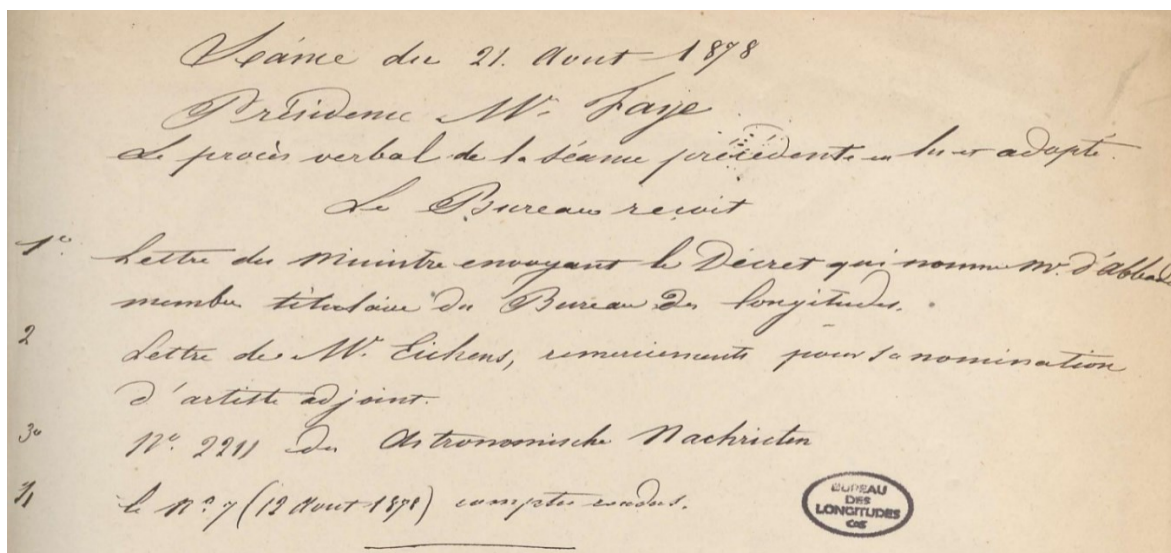 Séance du 21. Aout 1878
Présidence Mr. Faye
Le procès verbal de la séance précédente est lu et adopté.
Le Bureau reçoit
1o. Lettre du Ministre envoyant le Décret qui nomme Mr. d'Abbadie
membre titulaire du Bureau des longitudes.
2 Lettre de Mr. Eichens, remerciements pour sa nomination
d'artiste adjoint.
3o No. 2211 des Astronomische Nachricten
4 le No. 7 (12 Aout 1878) comptes rendus.
BUREAU
DES
LONGITUDES